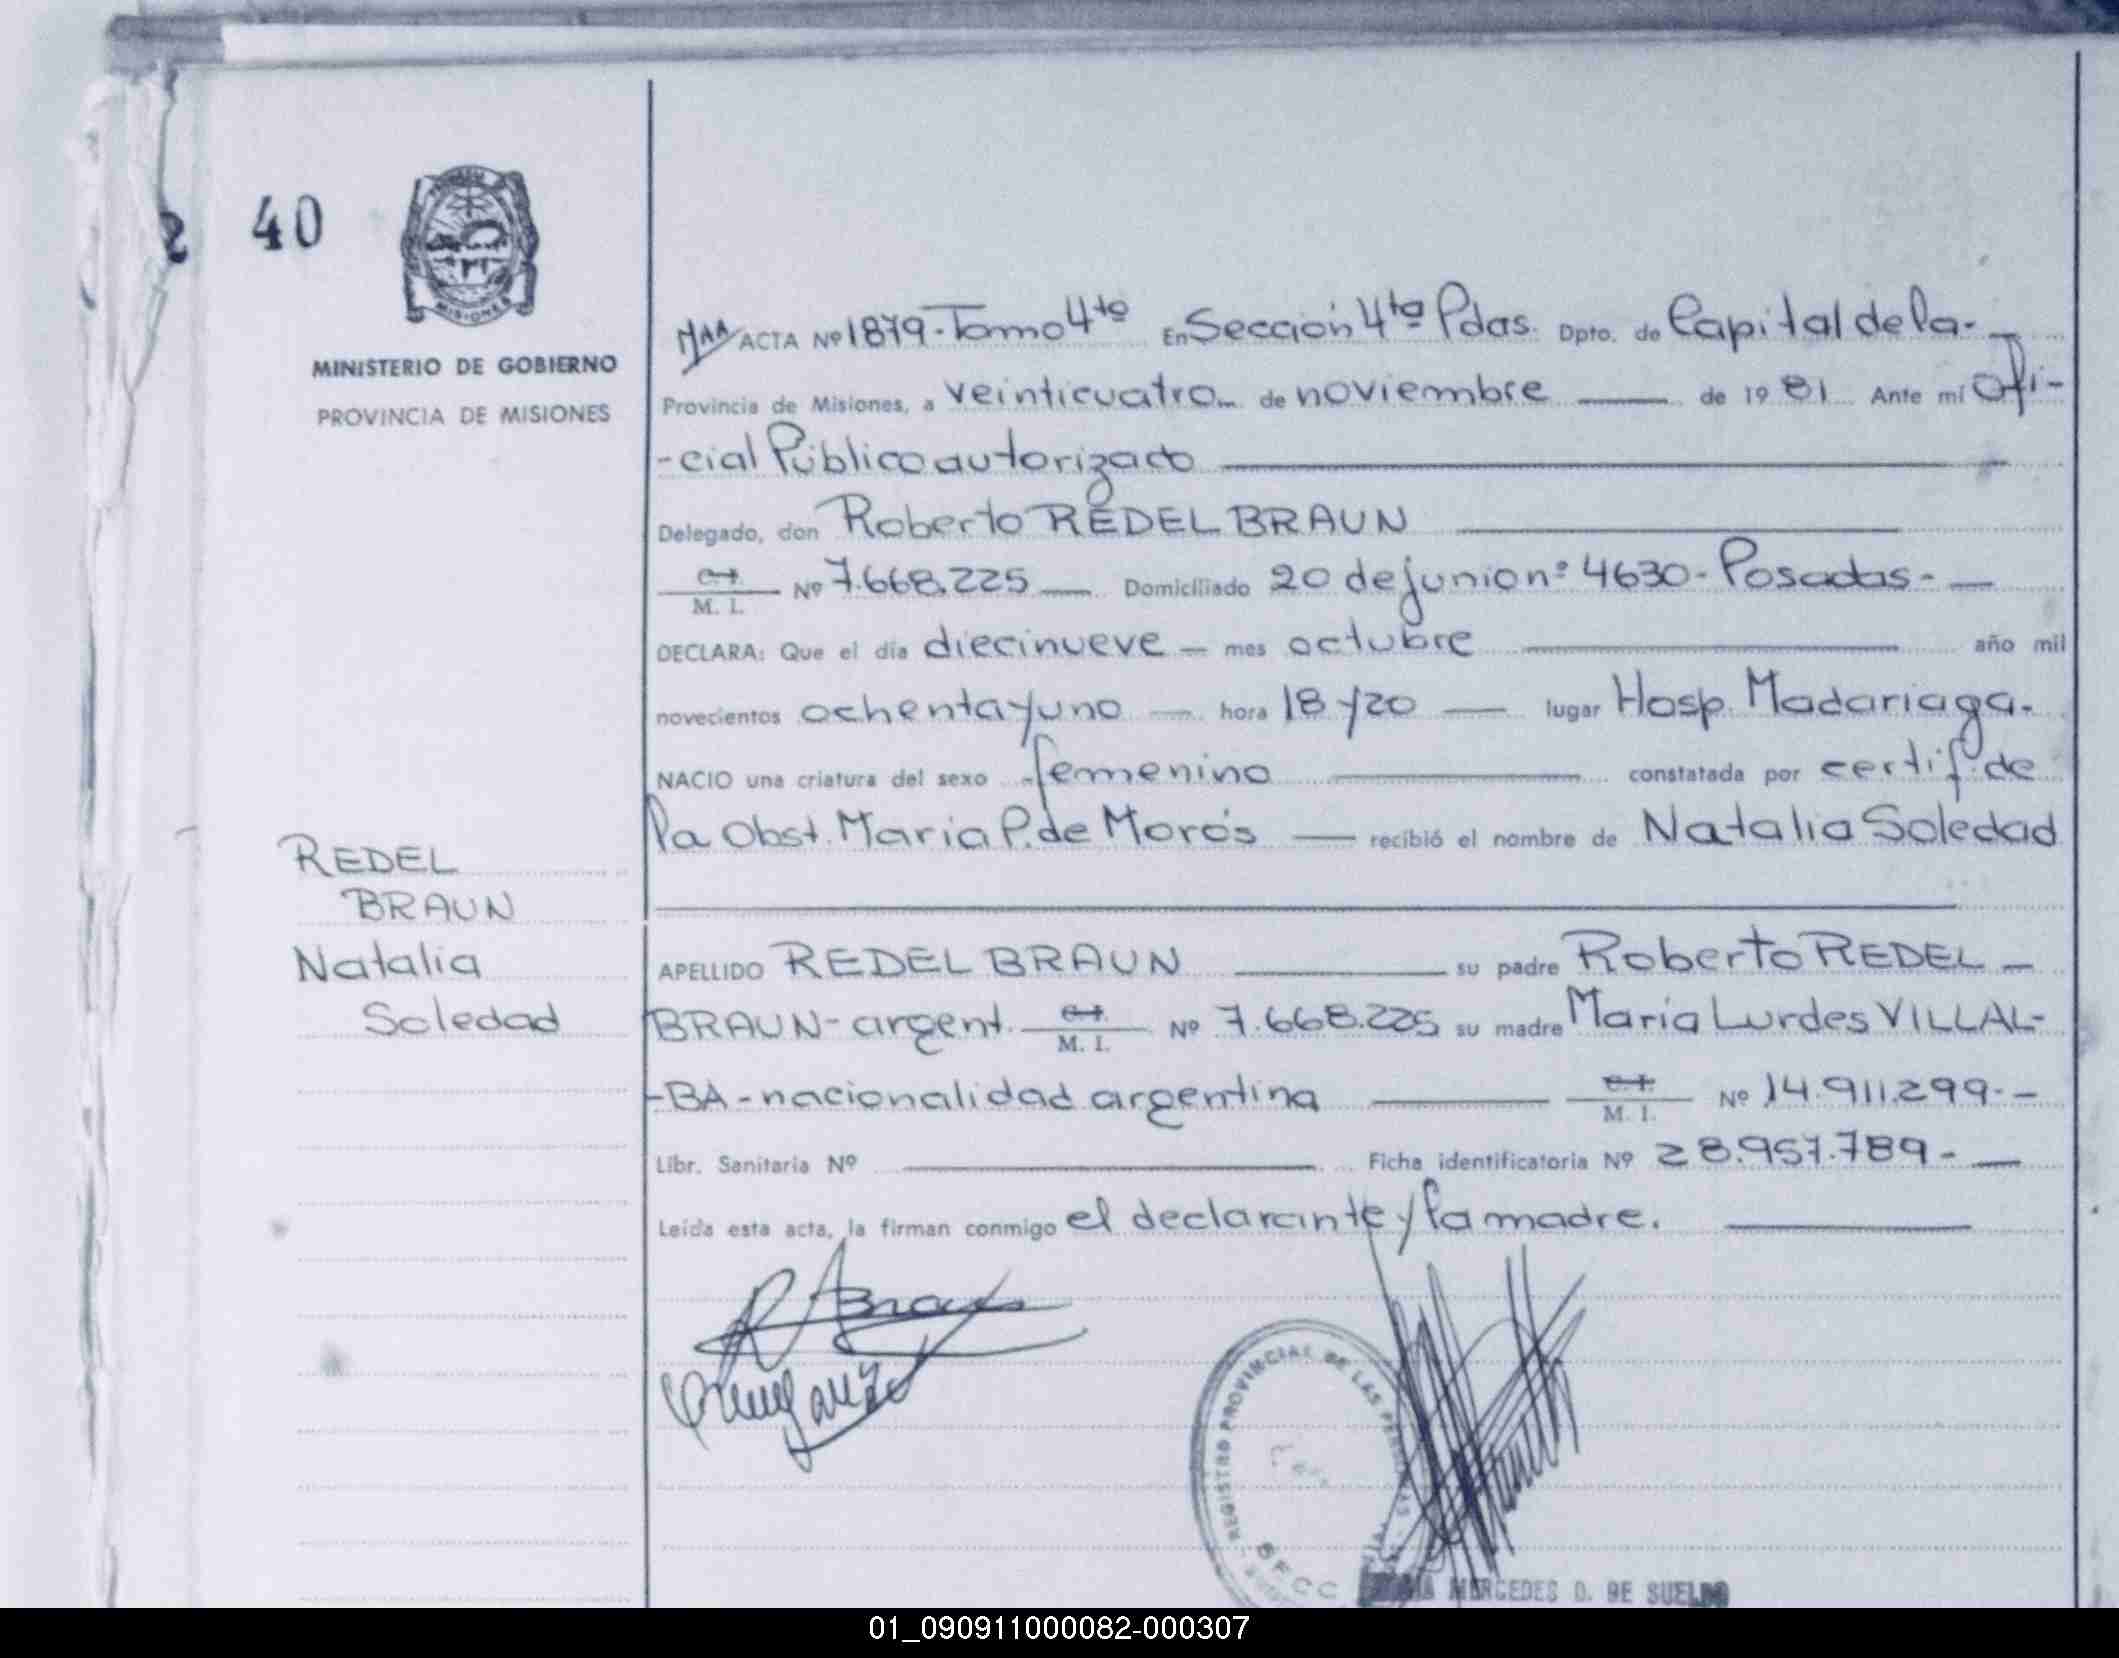 2 40
MISIONES
MINISTERIO DE GOBIERNO
PROVINCIA DE MISIONES
ACTA Nº 1879-Tomo 4to En Sección 4ta Pdas. Dpto. de Capital de la-
Provincia de Misiones, a veinticuatro de noviembre de 1981 Ante mí Ofi-
-cial Público autorizado
Delegado, don Roberto REDEL BRAUN
C.I.
M. I. Nº 7.668.225 Domiciliado 20 de junio nº 4630-Posadas-
DECLARA: Que el día diecinueve mes octubre año mil
novecientos ochenta y uno hora 18 y 20 lugar Hosp. Madariaga.
NACIO una criatura del sexo femenino constatada por certif. de
la Obst. Maria P. de Morós recibió el nombre de Natalia Soledad
REDEL
BRAUN
Natalia
Soledad
APELLIDO REDEL BRAUN su padre Roberto REDEL
BRAUN-argent. C.I. M. I. Nº 7.668.225 su madre María Lurdes VILLAL-
-BA-nacionalidad argentina C.I. M. I. Nº 14.911.299.-
Libr. Sanitaria Nº Ficha identificatoria Nº 28.957.789-
Leída esta acta, la firman conmigo el declarante y la madre.
REGISTRO PROVINCIAL DE LAS PERSONAS
MERCEDES D. DE SUELDO
01_090911000082-000307